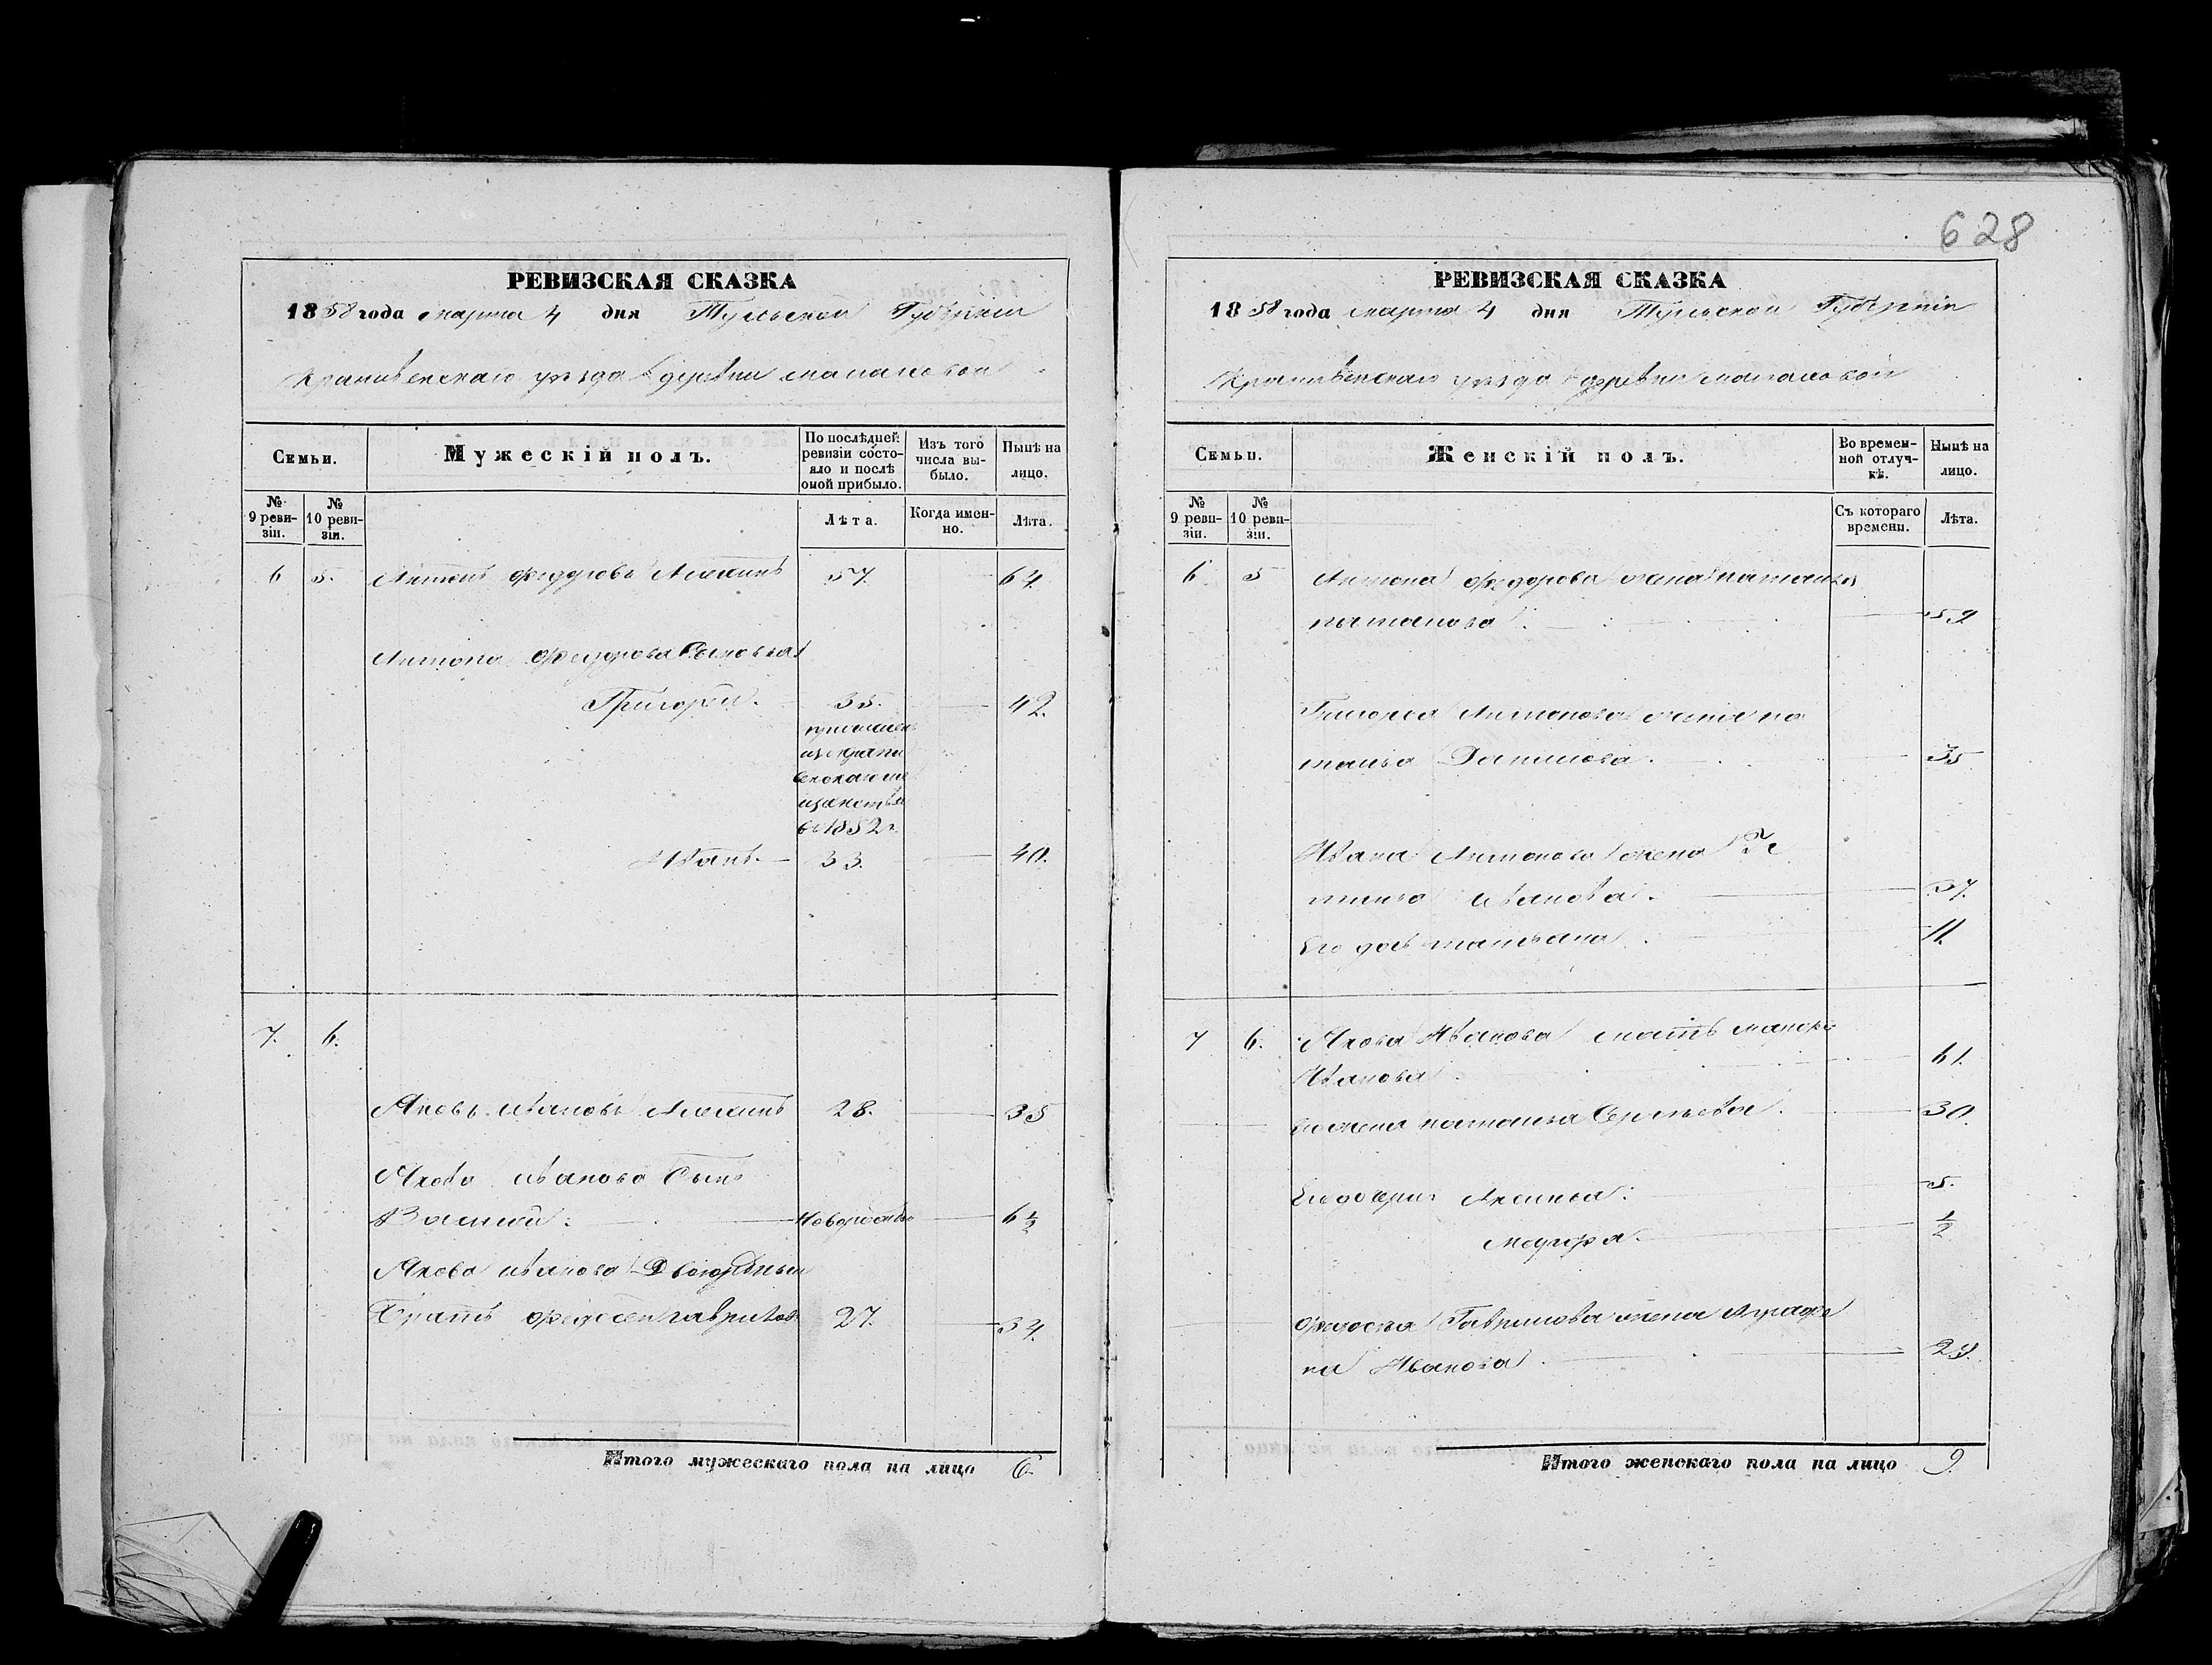 628
РЕВИЗСКАЯ СКАЗКА
1858 года марта 4 дня Тульской Губернии
Крапивенскаго уѣзда деревни
Семьи.
Мужескій полъ.
По послѣдней ревизіи состояло и послѣ оной прибыло.
Изъ того числа выбыло.
Нынѣ на лицо.
№ 9 ревизіи.
№ 10 ревизіи.
Лѣта.
Когда именно.
Лѣта.
6 5. Антонъ Федоровъ 57. 64
Антона Федорова Сыновья
Григорей. 35. 42.
въ 1852 г.
Иванъ. 33. 40.
7. 6.
Яковъ Ивановъ 28. 35
Якова Иванова Сынъ
Василий. 6 ½
Якова Иванова Двоюродный
Братъ Федосей Гаврилов 27. 34.
Итого мужескаго пола на лицо 6.
РЕВИЗСКАЯ СКАЗКА
1858 года марта 4 дня Тульской Губернии
Крапивенскаго уѣзда деревни
Семьи.
Женскій полъ.
Во временной отлучкѣ.
Нынѣ на лицо.
№ 9 ревизіи.
№ 10 ревизіи.
Съ котораго времени.
Лѣта.
6 5 Антона Федорова жена Наталья
59
Григорья Антонова жена На
талья Данилова. 35
Ивана Антонова жена
Иванова. 37.
Его дочь Татьяна. 11.
7 6. Якова Иванова мать
Иванова 61.
Его жена Наталья 30.
Его дочери Аксинья. 5.
½
Федосея Гаврилова жена Аграфе
на Иванова. 29.
Итого женскаго пола на лицо 9.